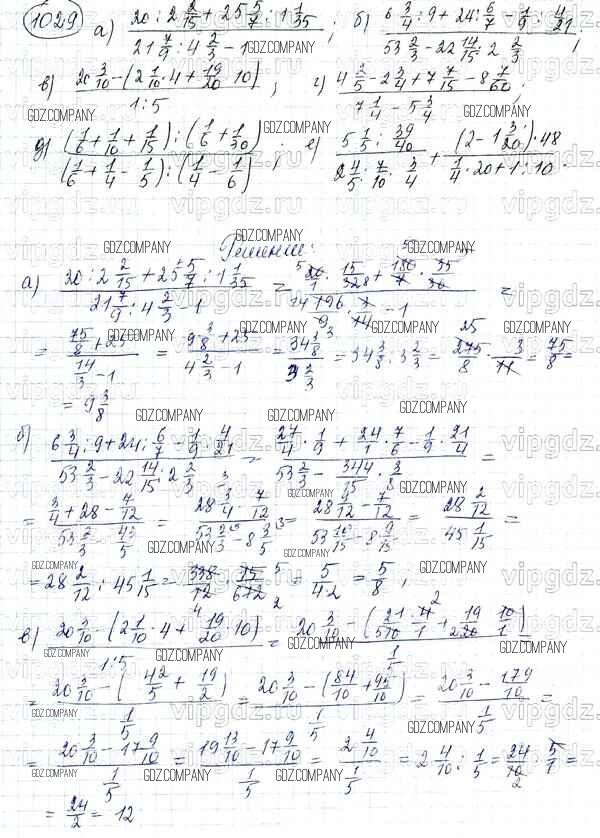 1029 а) (20 : 2 2/15 + 25 5/7 : 1 1/35) / (21 7/9 : 4 2/3 - 1) ; б) (6 3/4 : 9 + 24 : 6/7 - 1/9 : 4/21) / (53 2/3 - 22 14/15 : 2 2/3) ;
в) (20 3/10 - (2 1/10 · 4 + 19/20 · 10)) / (1 : 5) ; г) (4 2/5 - 2 3/4 + 7 7/15 - 8 7/60) / (7 1/4 - 5 3/4) ;
д) ((1/6 + 1/10 + 1/15) : (1/6 + 1/30)) / ((1/6 + 1/4 - 1/5) : (1/4 - 1/6)) ; е) (5 1/5 : 39/40) / (2 4/5 : 7/10 · 3/4) + ((2 - 1 3/20) · 48) / (1/4 · 20 + 1 : 10) .
GDZ.COMPANY
vipgdz.ru
Решение:
а) (20 : 2 2/15 + 25 5/7 : 1 1/35) / (21 7/9 : 4 2/3 - 1) =
= (75/8 + 25) / (14/3 - 1) = (9 3/8 + 25) / (4 2/3 - 1) = 34 3/8 / 3 2/3 = 34 3/8 : 3 2/3 = 275/8 · 3/11 = 75/8 =
= 9 3/8
б) (6 3/4 : 9 + 24 : 6/7 - 1/9 : 4/21) / (53 2/3 - 22 14/15 : 2 2/3) = (27/4 · 1/9 + 24/1 · 7/6 - 1/9 · 21/4) / (53 2/3 - 344/15 · 3/8) =
= (3/4 + 28 - 7/12) / (53 2/3 - 43/5) = (28 3/4 - 7/12) / (53 2/3 - 8 3/5) = (28 9/12 - 7/12) / (53 10/15 - 8 9/15) = 28 2/12 / 45 1/15 =
= 28 2/12 : 45 1/15 = 338/12 · 15/676 = 5/(4·2) = 5/8 ;
в) (20 3/10 - (2 1/10 · 4 + 19/20 · 10)) / (1 : 5) = (20 3/10 - (21/10 · 4/1 + 19/20 · 10/1)) / (1/5) =
= (20 3/10 - (42/5 + 19/2)) / (1/5) = (20 3/10 - (84/10 + 95/10)) / (1/5) = (20 3/10 - 179/10) / (1/5) =
= (20 3/10 - 17 9/10) / (1/5) = (19 13/10 - 17 9/10) / (1/5) = 2 4/10 / (1/5) = 2 4/10 : 1/5 = 24/10 · 5/1 =
= 24/2 = 12